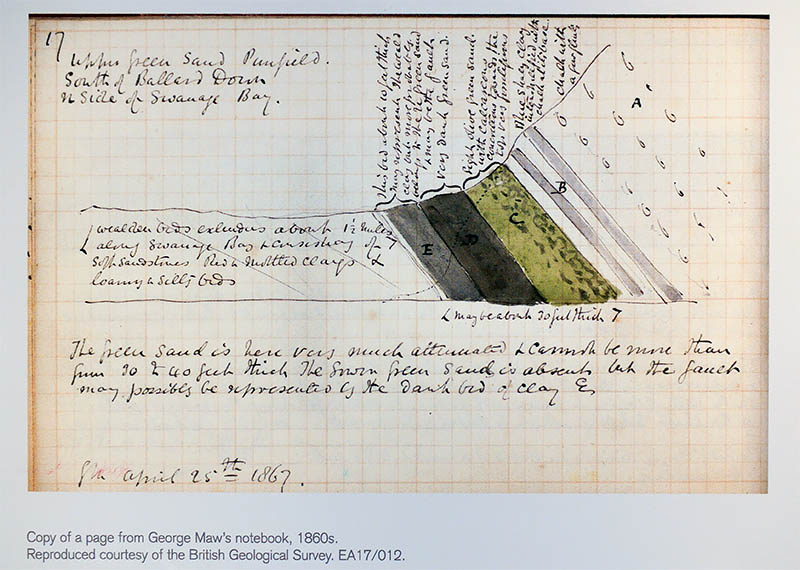 17
Upper Green Sand Punfield.
South of Ballard Down
N Side of Swanage Bay.
This bed about 10 feet thick
may represent the weald
clay but more probably
belongs to the green sand
& may be the Gault
very dark Green Sand.
light olive green sand
with calcareous
concretions towards the
very fossiliferous
clay
intermixed with
chalk at the base.
chalk with
a few flints
A
B
C
D
E
wealden beds extending about 1½ miles
along Swanage Bay & consisting of
Soft Sandstones Red & Mottled clays &
loamy & Selty beds
may be about 30 feet thick
The Green Sand is here very much attenuated & cannot be more than
from 30 to 40 feet thick The lower Green Sand is absent but the Gault
may possibly be represented by the dark bed of clay E
April 25th 1867.
Copy of a page from George Maw's notebook, 1860s.
Reproduced courtesy of the British Geological Survey. EA17/012.